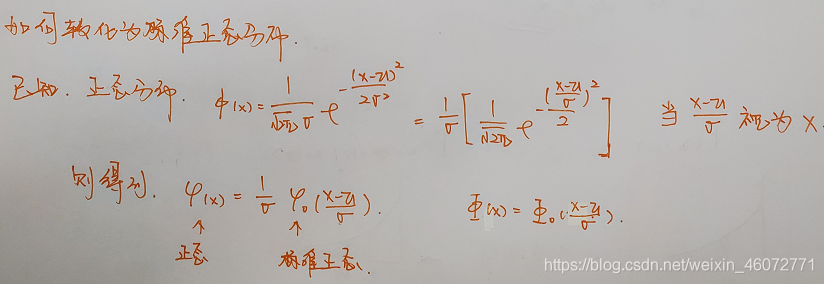 如何转化为标准正态分布.
已知. 正态分布. φ(x) = \frac{1}{\sqrt{2π}σ} e^{-\frac{(x-u)^2}{2σ^2}} = \frac{1}{σ} [ \frac{1}{\sqrt{2π}} e^{-\frac{(\frac{x-u}{σ})^2}{2}} ] 当 \frac{x-u}{σ} 视为 x.
则得到. φ(x) = \frac{1}{σ} φ₀(\frac{x-u}{σ}). Φ(x) = Φ₀(\frac{x-u}{σ}).
↑ ↑
正态 标准正态.
https://blog.csdn.net/weixin_46072771